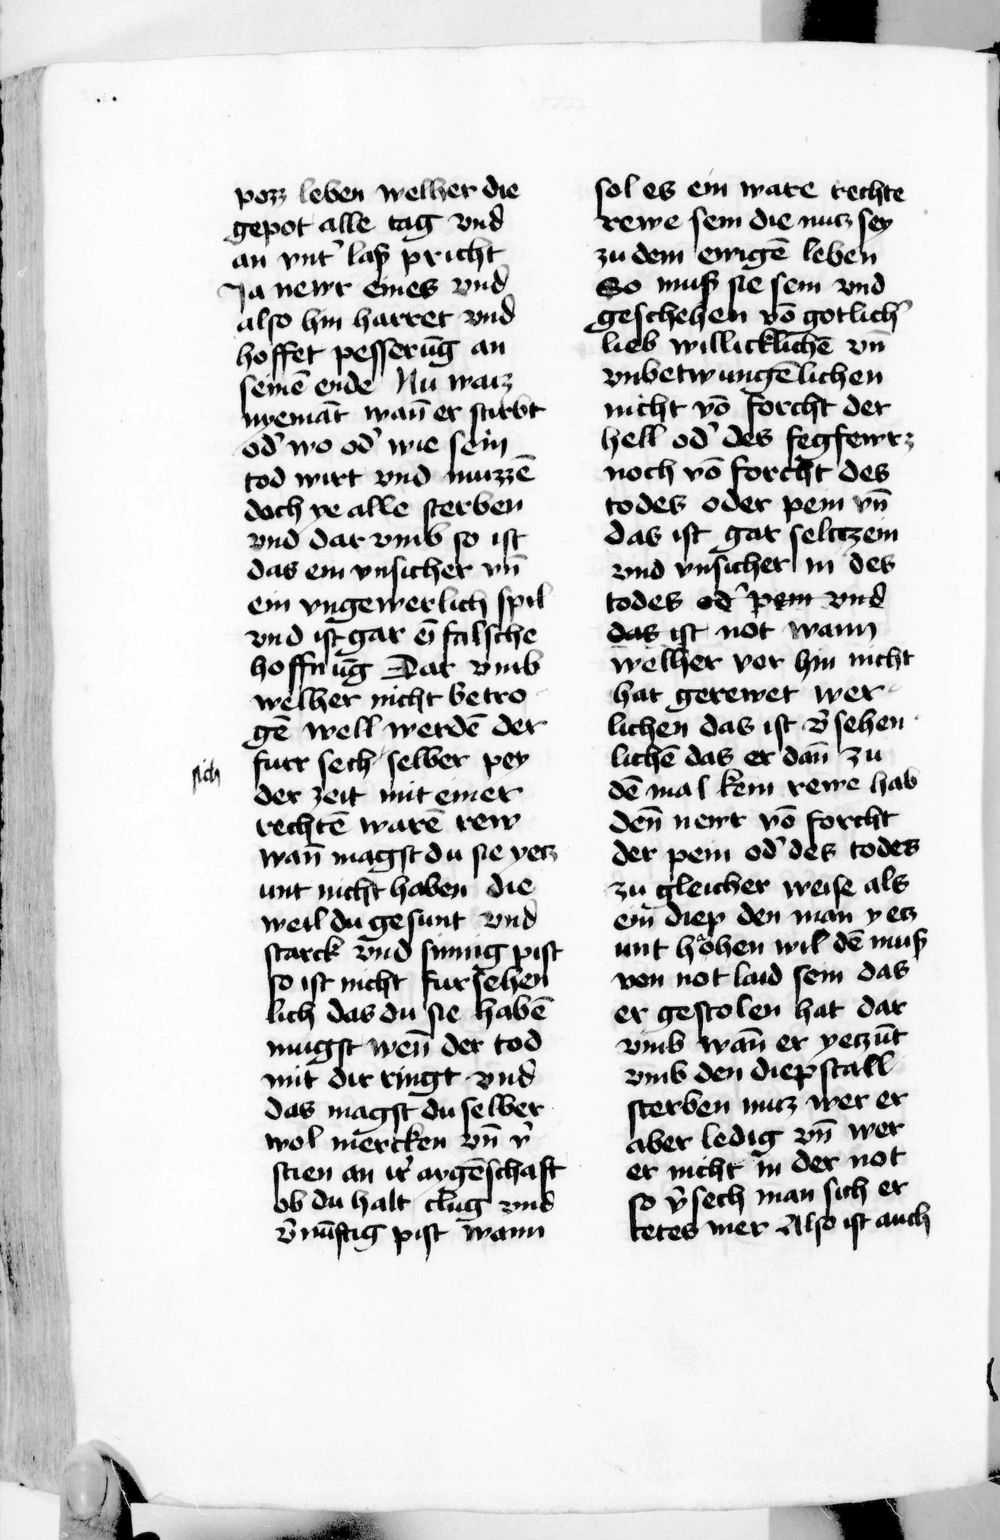 pozz leben welher die
gepot alle tag vnd
an vnt' laß pricht
Ja newr eines vnd
also hin harret vnd
hoffet pesserūg an
seinē ende Nu waiz
nyemāt wan̄ er stirbt
od' wo od' wie sein
tod wirt vnd muzzē
doch ye alle sterben
vnd dar vmb so ist
das ein vnsicher vn̄
ein vngewerlich spil
vnd ist gar ei̅ falsche
hoffnūg Dar vmb
welher nicht betro
gē well werdē der
furr sech selber pey
sich
der zeit mit einer
rechtē warē rew
wan̄ magst du sie yetz
unt nicht haben die
weil du gesunt vnd
starck vnd sinnig pist
so ist nicht fursehen
lich das du sie habē
mugst wen̄ der tod
mit dir ringt vnd
das magst du selber
wol mercken vn̄ v'
stien an ir' aygēschaft
ob du halt clug vnd
v'nūftig pist wann
sol es ein ware rechte
rewe sein die nutz sey
zu dem ewigē leben
So muß sie sein vnd
geschehen vō gotlich'
lieb willicklichē vn̄
vnbetwungēlichen
nicht vō forcht der
hell od' des fegfewrz
noch vō forcht des
todes oder pein vn̄
das ist gar seltczein
vnd vnsicher in des
todes od' pein vnd
das ist not wann
welher vor hin nicht
hat gerewet wer
lichen das ist v'sehen
lichē das er dan̄ zu
dē mal kein rewe hab
den̄ newr vō forcht
der pein od' des todes
zu gleicher weise als
ein diep den man yetz
unt hohen wil dē muß
von not laid sein das
er gestolen hat dar
vmb wan̄ er yetzūt
vmb den diepstall
sterben mutz wer er
aber ledig vn̄ wer
er nicht in der not
so v'sech man sich er
tetes mer Also ist auch